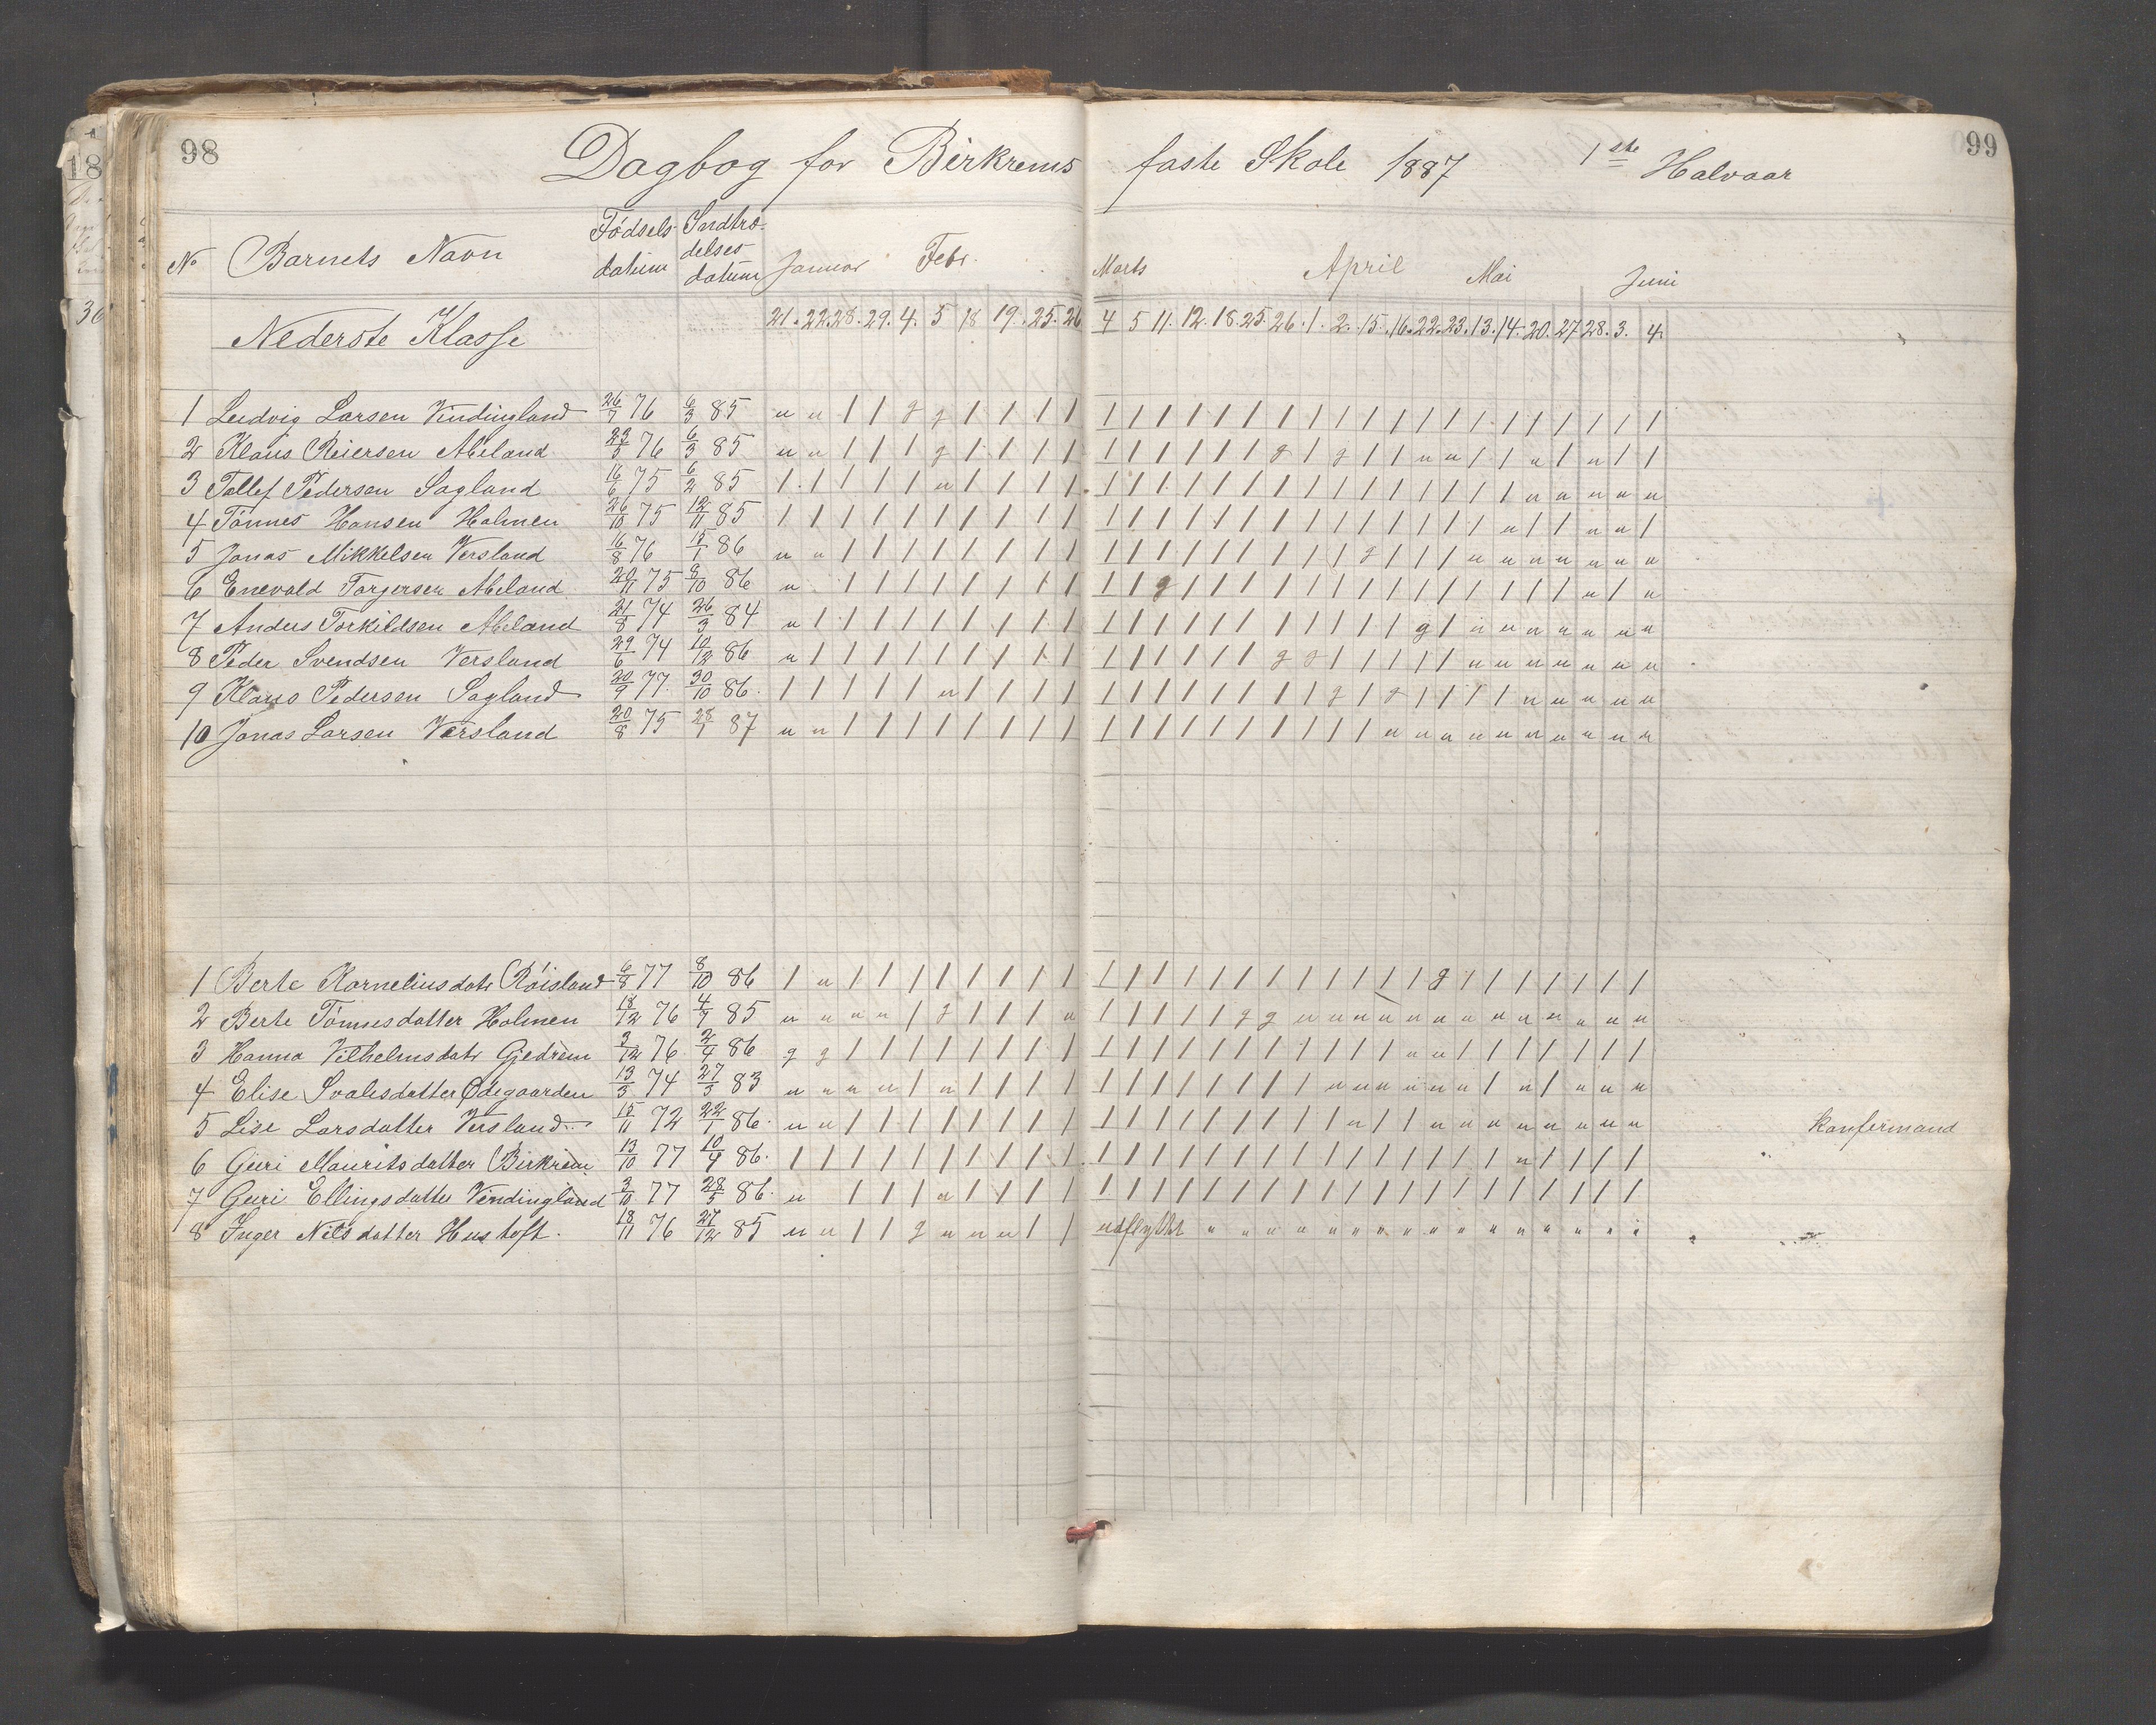 98
99
Dagbog for Birkrems faste Skole 1887 1ste Halvaar
No Barnets Navn Födsels datum Indtrædelses datum Januar Febr. Marts April Mai Juni
Nederste Klasse 21. 22. 28. 29. 4. 5 18 19. 25. 26 4 5 11. 12. 18. 25. 26. 1. 2. 15. 16. 22. 23. 13. 14. 20. 27 28. 3. 4.
1 Ludvig Larsen Vindingland 26/7 76 6/3 85 u u / / g g / / / / / / / / / / / / / / / / / / / / / / / /
2 Klaus Reiersen Abeland 23/5 76 6/3 85 u u / / / g / / / / / / / / / / g / g / / u u / / u / u / /
3 Tollef Pedersen Sagland 16/6 75 6/2 85 / / / / / u / / / / / / / / / / / / / / / / / / / u u u u u
4 Tönnes Hansen Holmen 26/10 75 12/11 85 / / / / / / / / / / / / / / / / / / / / / / / / u / / u u /
5 Jonas Mikkelsen Versland 16/8 76 15/1 86 u u / / / / / / / / / / / / / / / / / g / / / u u u u u u u
6 Enevald Torgersen Abeland 20/11 75 9/10 86 u / / / / / / / / / / g / / / / / / / / / / / / / / u / u
7 Anders Torkildsen Abeland 21/8 74 26/3 84 u / / / / / / / / / / / / / / / / / / / / g / u u u u u u u
8 Peder Svendsen Versland 29/6 74 10/12 86 u / / / / / / / / / / / / / / / g g / / / / / u u u u u u u
9 Klaus Pedersen Sagland 20/9 77 30/10 86. / / / / / u / / / / / / / / / / / / g / g / / / / u u u u u
10 Jonas Larsen Versland 20/8 75 28/1 87 u u / / / / / / / / / / / / / / / / / / u u u u u u u u u u
1 Berte Kornelius datr Röisland 6/8 77 8/10 86 / u / / / / / / / / / / / / / / / / / / / / g / / / / / / /
2 Berte Tönnesdatter Holmen 18/12 76 4/7 85 u u u u / g / / / u / / / / / g g u u u u u u u u u u u u u
3 Hanna Vilhelmsdatr Gjedrem 3/12 76 2/4 86 g g / / / / / / / / / / / / / / / / / / / u u / / / / / / /
4 Elise Svalesdatter Ødegaarden 13/3 74 27/3 83 u u u u / u / / / / / / / / / / / / u u u u u u / u / u u u
5 Lise Larsdatter Versland 15/11 72 22/1 86. u u / / / / / / / / / / / / / / / / / u / / u u u u u u u u konfirmand
6 Guri Mauritsdatter Birkrem 13/10 77 10/4 86. / / / / / / / / / / / / / / / / / / / / / / / / / u / / / /
7 Guri Ellingsdatter Vindingland 3/10 77 28/5 86. u / / / u / / / / / / / / / / / / / / / / / / / / / / / /
8 Inger Nilsdatter Hustoft. 18/11 76 27/12 85 u u / / g u u u / / udflyttet " " " " " " " " " " " " " " " "